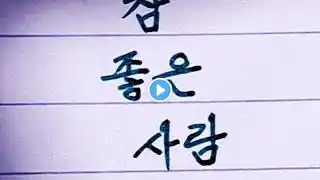 참
좋은
사람